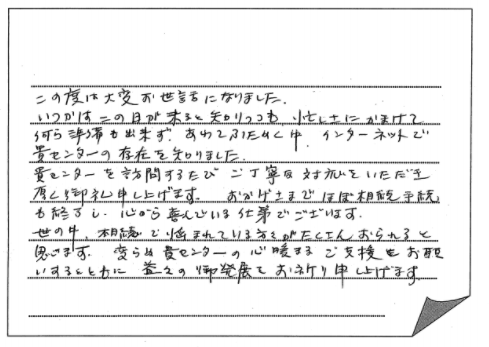 この度は大変お世話になりました。
いつかはこの日が来ると知りつつも、忙しさにかまけて、
何ら準備も出来ず、あわてふためく中、インターネットで
貴センターの存在を知りました。
貴センターを訪問するたび ご丁寧な対応をいただき
厚く御礼申し上げます。 おかげさまでほぼ相続手続
も終了し、心から喜んでいる仕第でございます。
世の中、相続で悩まれている方々がたくさんおられると
思います。 変らぬ貴センターの心暖まるご支援をお願
いするとともに 益々の御発展をお祈り申し上げます。